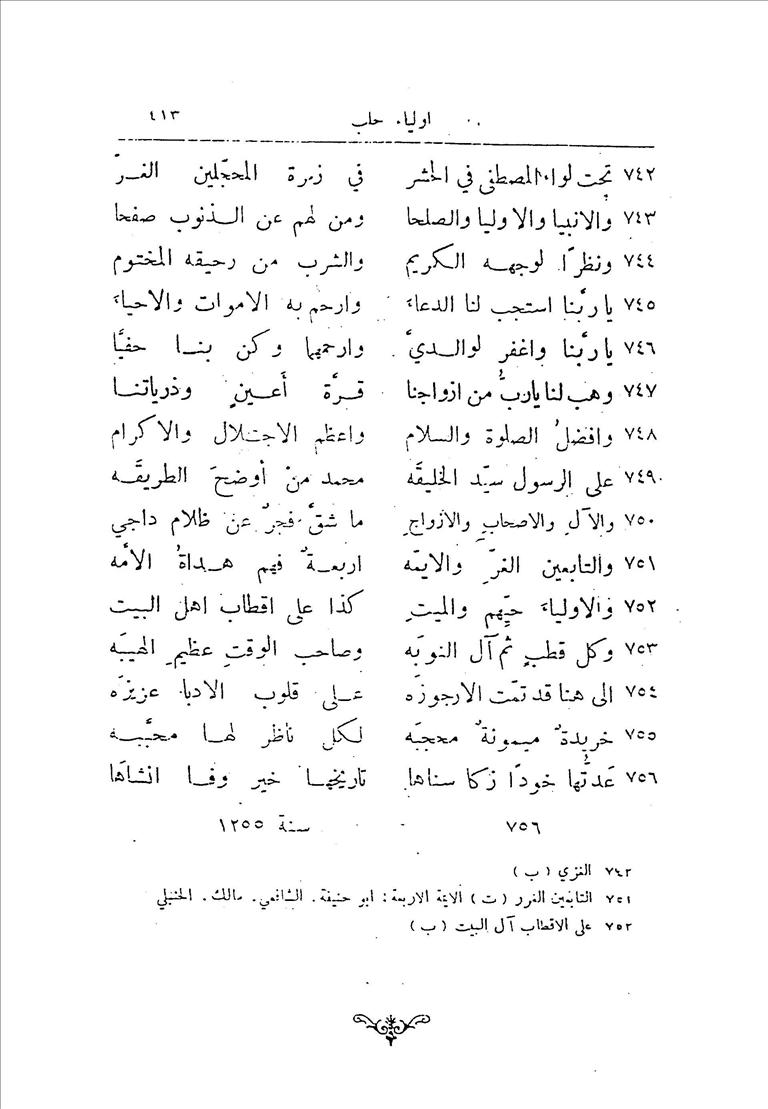 اولياء حلب ٤١٣
٧٤٢ تحت لواء المصطفى في الحشر في زمرة المحجّلين الغرّ
٧٤٣ والانبيا والاوليا والصلحا ومن لهم عن الذنوب صفحا
٧٤٤ ونظرًا لوجهه الكريم والشرب من رحيقه المختوم
٧٤٥ يا ربّنا استجب لنا الدعاء وارحم به الاموات والاحياء
٧٤٦ يا ربّنا واغفر لوالديَّ وارحمهما وكن بنا حفيًّا
٧٤٧ وهب لنا يا ربُّ من ازواجنا قرّة أَعينٍ وذرياتنا
٧٤٨ وافضلُ الصلوة والسلام واعظم الاجلال والاكرام
٧٤٩ على الرسول سيّد الخليقَه محمد منْ أوضحَ الطريقَه
٧٥٠ والآلِ والاصحابِ والازواجِ ما شقَّ فجرٌ عن ظلام داجي
٧٥١ والتابعين الغرِّ والايمّه اربعةٌ فهم هداةُ الامّه
٧٥٢ والاولياء حيّهم والميتِ كذا على اقطاب اهل البيت
٧٥٣ وكل قطبٍ ثم آل النوبَه وصاحب الوقتِ عظيمِ الهيبَه
٧٥٤ الى هنا قد تمّت الارجوزَه على قلوب الادبا عزيزَه
٧٥٥ خريدةٌ ميمونةٌ محجبَه لكل ناظر لها محبَّبه
٧٥٦ عَدتُّها خودًا زكا سناها تاريخها خير وفا انشاَها
٧٥٦ سنة ١٢٥٥
٧٤٢ الغزي (ب)
٧٥١ التابعين الغرر (ت) الائمة الاربعة: ابو حنيفة. الشافعي. مالك. الحنبلي
٧٥٢ على الاقطاب آل البيت (ب)